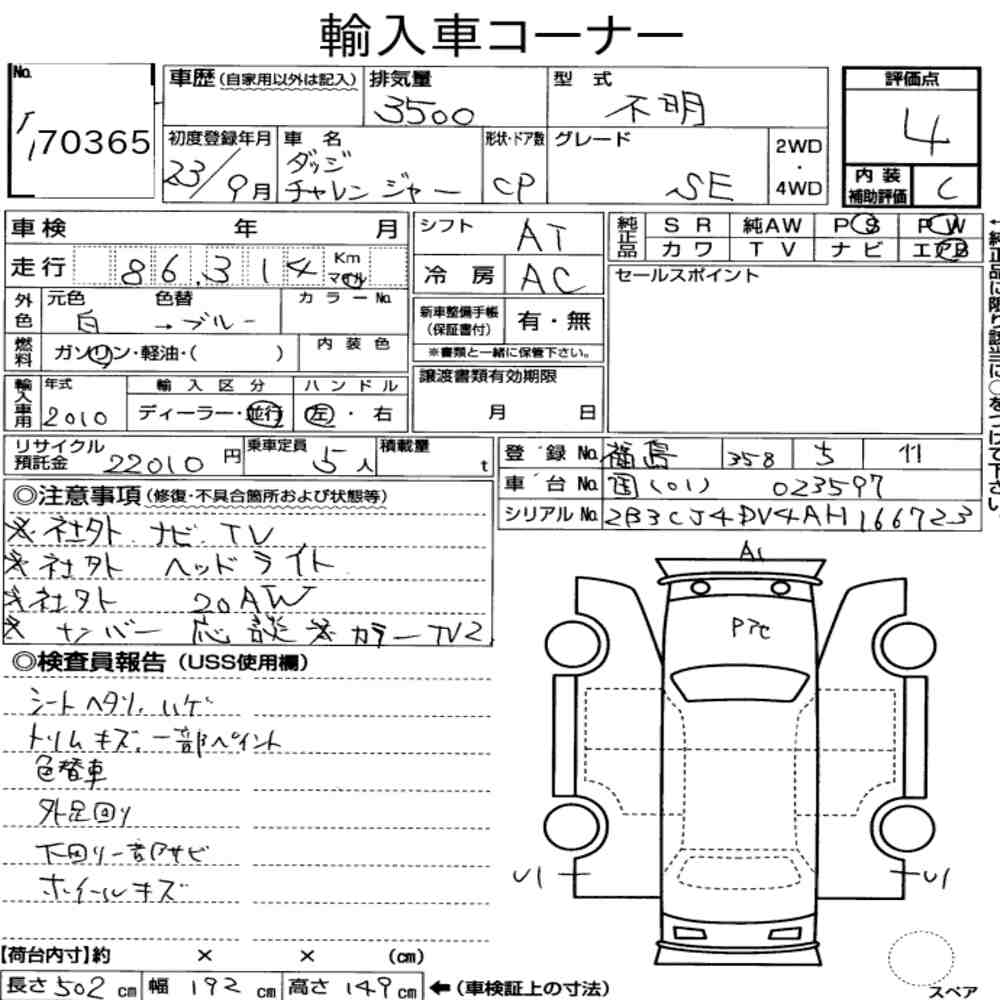 輸入車コーナー
No.
170365
車歴 (自家用以外は記入)
排気量
3500
型式
不明
評価点
4
初度登録年月
23/9月
車名
ダッジ
チャレンジャー
形状・ドア数
CP
グレード
SE
2WD
・
4WD
内装
補助評価
C
車検 年 月
走行 86,314 Km
マイル
シフト
AT
冷房
AC
純正品
SR 純AW PS PW
カワ TV ナビ エアB
セールスポイント
外色
元色 色替
白 → ブルー
カラーNo.
燃料
ガソリン・軽油・( )
内装色
新車整備手帳
(保証書付)
有・無
※書類と一緒に保管下さい。
譲渡書類有効期限
月 日
輸入車用
年式
2010
輸入区分
ディーラー・並行
ハンドル
左・右
リサイクル
預託金
22010円
乗車定員
5人
積載量
t
登録No. 福島 358 ち 11
車台No. 国(01) 023597
シリアルNo. 2B3CJ4DV4AH166723
◎注意事項(修復・不具合箇所および状態等)
※社外 ナビ. TV
※社外 ヘッドライト
※社外 20AW
※ナンバー応談 ※カラーTV2
◎検査員報告(USS使用欄)
シートヘタリ、ハゲ
トリムキズ、一部ペイント
色替車
外足回り
下回り一部サビ
ホイールキズ
A1
P7C
U1
U1
【荷台内寸】約 × × (cm)
長さ502cm 幅192cm 高さ149cm ←(車検証上の寸法)
スペア
←純正品に限り該当に○をつけて下さい。